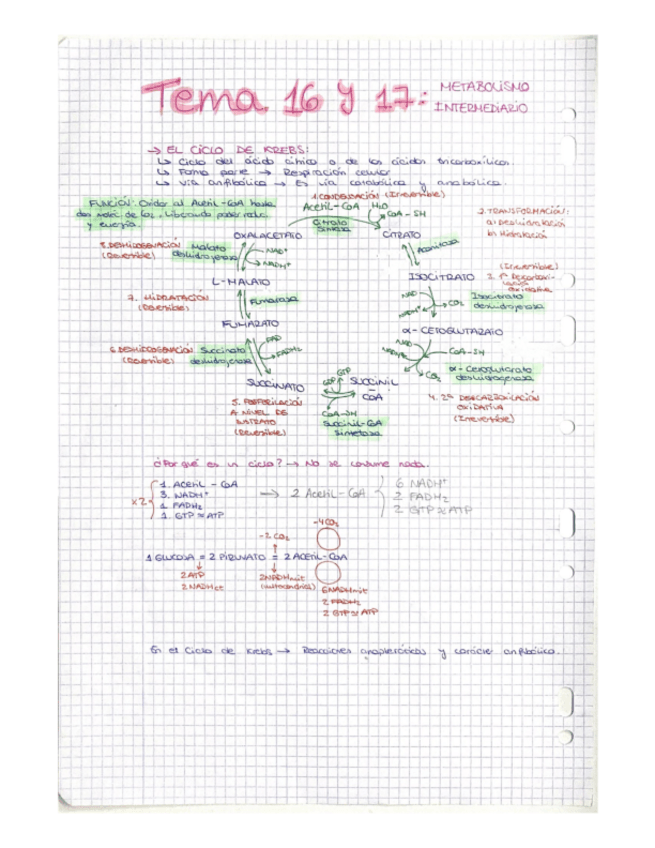 Tema 16 y 17: METABOLISMO
INTERMEDIARIO
→ EL CICLO DE KREBS:
↳ Ciclo del ácido cítrico o de los ácidos tricarboxílicos.
↳ Forma parte → Respiración celular
↳ Vía anfibólica → Es vía catabólica y anabólica.
FUNCIÓN: Oxidar al Acetil-CoA hasta
y energía.
1. CONDENSACIÓN (Irreversible)
Acetil-CoA H₂O
CoA-SH
Citrato
sintasa
OXALACETATO
CITRATO
2. TRANSFORMACIÓN:
a) Deshidratación
b) Hidratación
Aconitasa
ISOCITRATO
(Irreversible)
oxidativa
Isocitrato
deshidrogenasa
NAD
CO₂
α-CETOGLUTARATO
NADH
CoA-SH
CO₂
α-Cetoglutarato
deshidrogenasa
4. 2ª DESCARBOXILACIÓN
OXIDATIVA
(Irreversible)
SUCCINIL
CoA
GTP
GDP
CoA-SH
Succinil-CoA
Sintetasa
5. FOSFORILACIÓN
A NIVEL DE
SUSTRATO
(Reversible)
SUCCINATO
6. DESHIDROGENACIÓN
(Reversible)
Succinato
deshidrogenasa
FAD
FADH₂
FUMARATO
7. HIDRATACIÓN
(Reversible)
Fumarasa
L-MALATO
8. DESHIDROGENACIÓN
(Reversible)
Malato
deshidrogenasa
NAD⁺
NADH⁺
¿Por qué es un ciclo? → No se consume nada.
x2
1. Acetil-CoA
3. NADH⁺
1. FADH₂
1. GTP ≈ ATP
→ 2 Acetil-CoA
6 NADH⁺
2 FADH₂
2 GTP ≈ ATP
-2 CO₂
-4CO₂
1 GLUCOSA = 2 PIRUVATO = 2 ACETIL-CoA
2ATP
2 NADHct
2NADHmit
(mitocondria)
6NADHmit
2 FADH₂
2 GTP ≈ ATP
En el Ciclo de Krebs → Reacciones anapleróticas y carácter anfibólico.